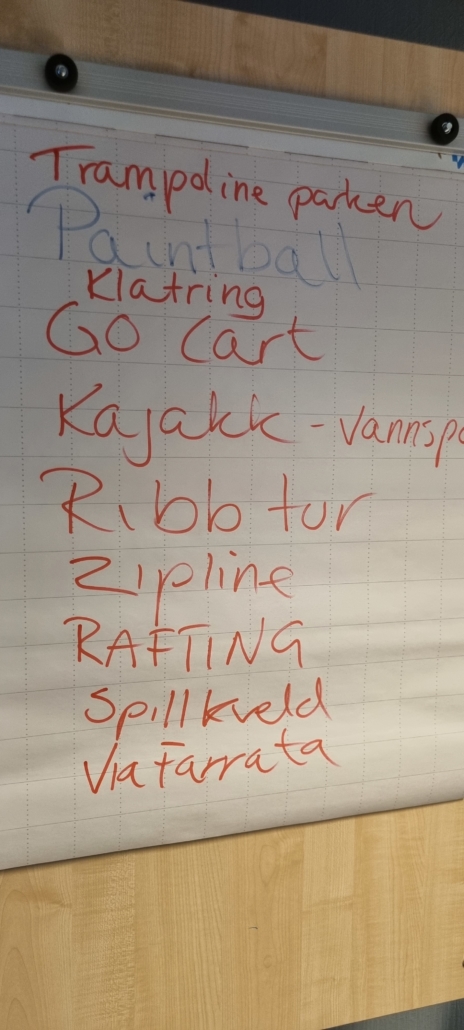 Trampoline parken
Paintball
Klatring
GO Cart
Kajakk - Vannspo
Ribb tur
Zipline
RAFTING
Spillkveld
Via farrata